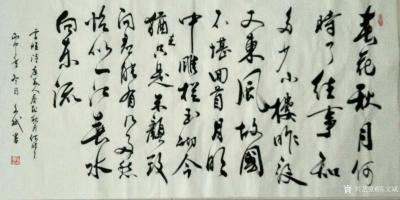 春花秋月何
時了往事知
多少小樓昨夜
又東風故國
不堪回首月明
中雕栏玉砌今
猶在只是朱顏改
问君能有几多愁
恰似一江春水
向东流
丙申年冬月文斌書